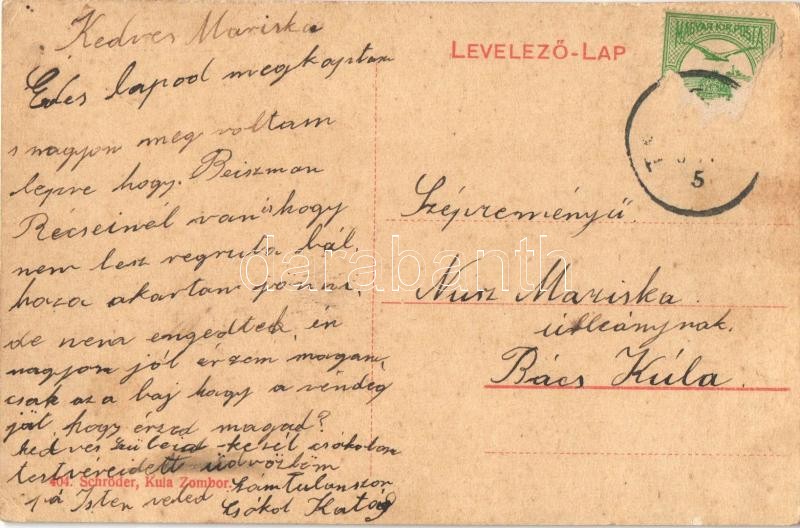 Kedves Mariska
Edes lapod megkaptam
s nagyon meg voltam
lepve hogy. Beiszman
Récseinél van is hogy
nem lesz regruta bál.
haza akartam jönni,
de nem engedtek, én
nagyon jól érzem magam,
csak az a baj hogy a vendég
ját hogy érzed magad?
kedves szüleid kezét csókolom
testvéreidett üdvözlöm
Isten veled számtalanszor
csókol Kató
404. Schröder, Kula Zombor.
LEVELEZŐ-LAP
MAGYAR KIR. POSTA
5
Szépreményű
Nusz Mariska
úrleánynak.
Bács Kúla
darabanth